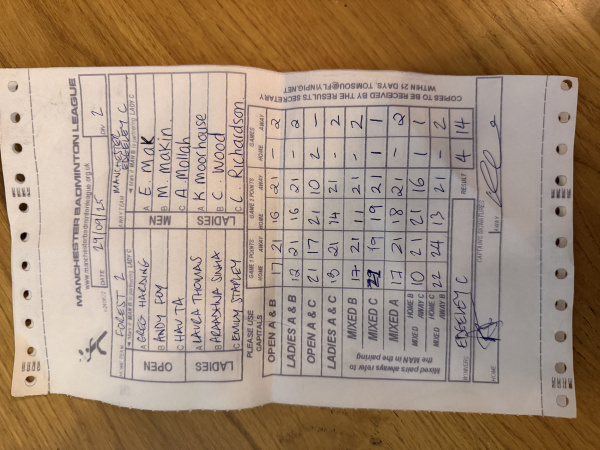 MANCHESTER BADMINTON LEAGUE
www.manchesterbadmintonleague.org.uk
DATE 29/09/25 DIV 2
HOME TEAM FOREST 2 AWAY TEAM MANCHESTER EDGELEY C
OPEN A GREG HARDING MEN A E. Mak
B ANDY FOY B M. Makin
C CHAU TA C A Mollah
LADIES A LAURA THOMAS LADIES A K Moorhouse
B ARADHNA SINHA B C. Wood
C EMILY STAPLEY C L. Richardson
PLEASE USE CAPITALS GAME 1 POINTS HOME AWAY GAME 2 POINTS HOME AWAY GAMES HOME AWAY
OPEN A & B 17 21 16 21 - 2
LADIES A & B 12 21 16 21 - 2
OPEN A & C 21 17 21 10 2 -
LADIES A & C 21 14 21 - 2
MIXED B 17 21 11 21 - 2
MIXED C 19 19 21 1 1
MIXED A 17 21 18 21 - 2
MIXED HOME B AWAY C 10 21 21 16 1 1
MIXED HOME C AWAY B 22 24 13 21 - 2
Mixed pairs always refer to the MAN in the pairing
WINNERS EDGELEY C RESULT 4 14
HOME CAPTAINS SIGNATURE AWAY
COPIES TO BE RECEIVED BY THE RESULTS SECRETARY
WITHIN 21 DAYS. TOMSOU@FLYNPIG.NET